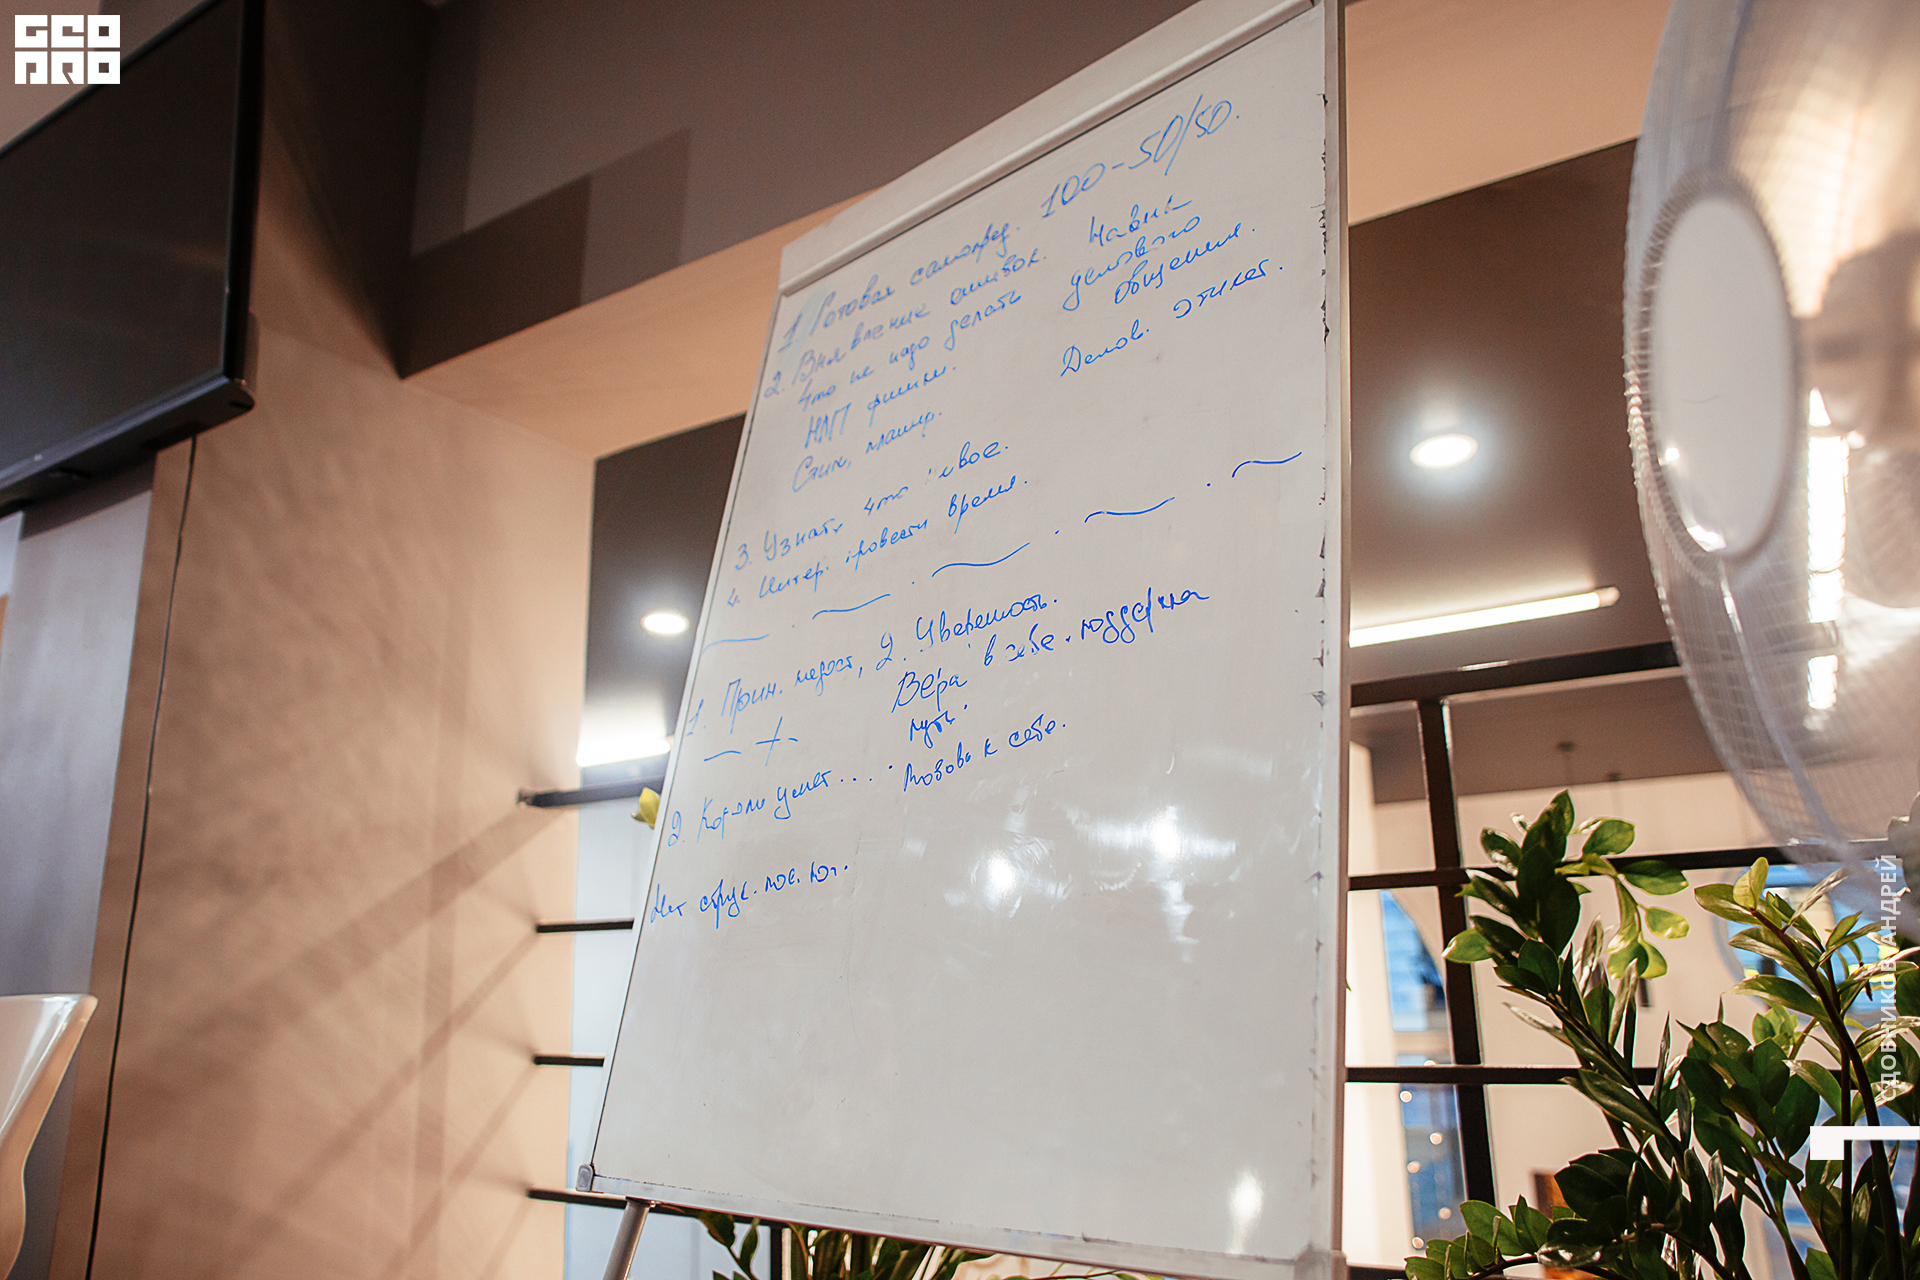 GEO
PRO
1 Готовая самопрез. 100-50/50.
2. Выявление ошибок. Навык
Что не надо делать делового
НЛП фишки. общения.
Стик, планир. Делов. этикет.
3. Узнать что новое.
4. Интер. провести время.
1. Прин. недост, 2. Уверенность.
— + - Вера в себе. поддержка
путь.
2. умет.... Любовь к себе.
Нет струк.
СДОБНИКОВ АНДРЕЙ